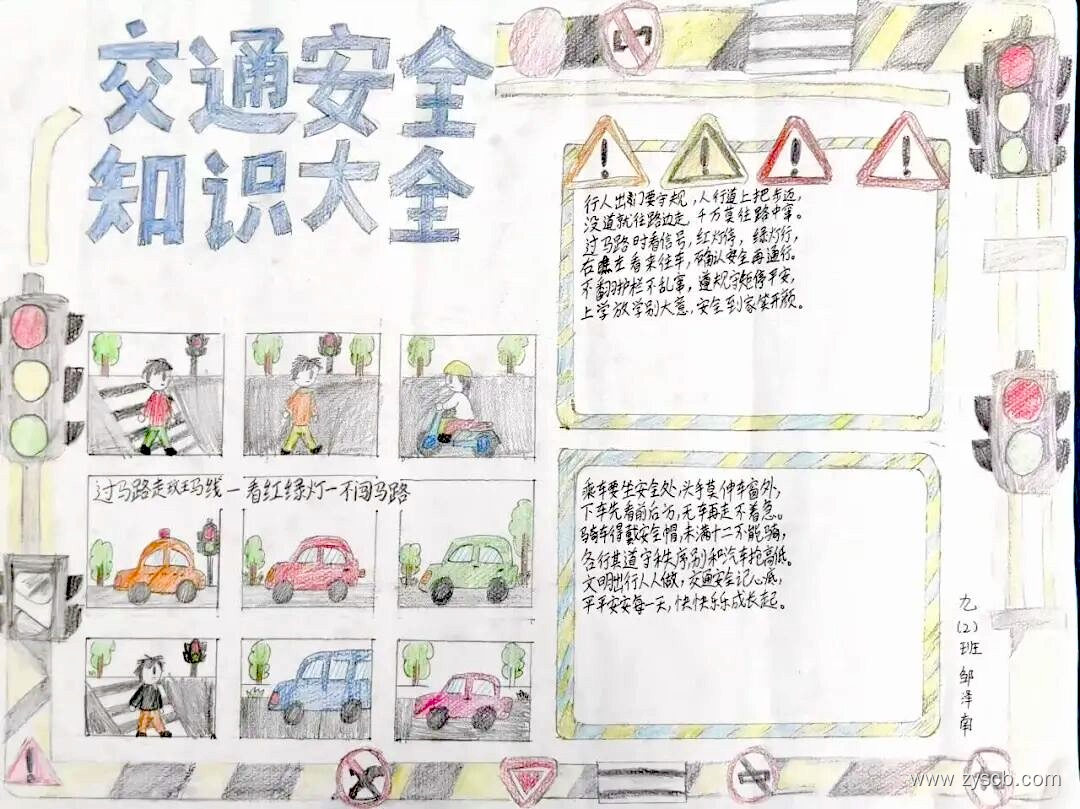 交通安全
知识大全
行人出门要守规,人行道上把步迈,
没道就往路边走,千万莫往路中穿。
过马路时看信号,红灯停,绿灯行,
右瞧左看来往车,确认安全再通行。
不翻护栏不乱穿,遵规守矩停平安,
上学放学别大意,安全到家笑开颜。
过马路走斑马线一看红绿灯一不闯马路
乘车要坐安全处,头手莫伸车窗外,
下车先看前后方,无车再走不着急。
骑车得戴安全帽,未满十二不能骑,
各行其道守秩序,别和汽车抢高低。
文明出行人人做,交通安全记心底,
平平安安每一天,快快乐乐成长起。
九
(2)
班
邹
泽
南
www.zyscb.com